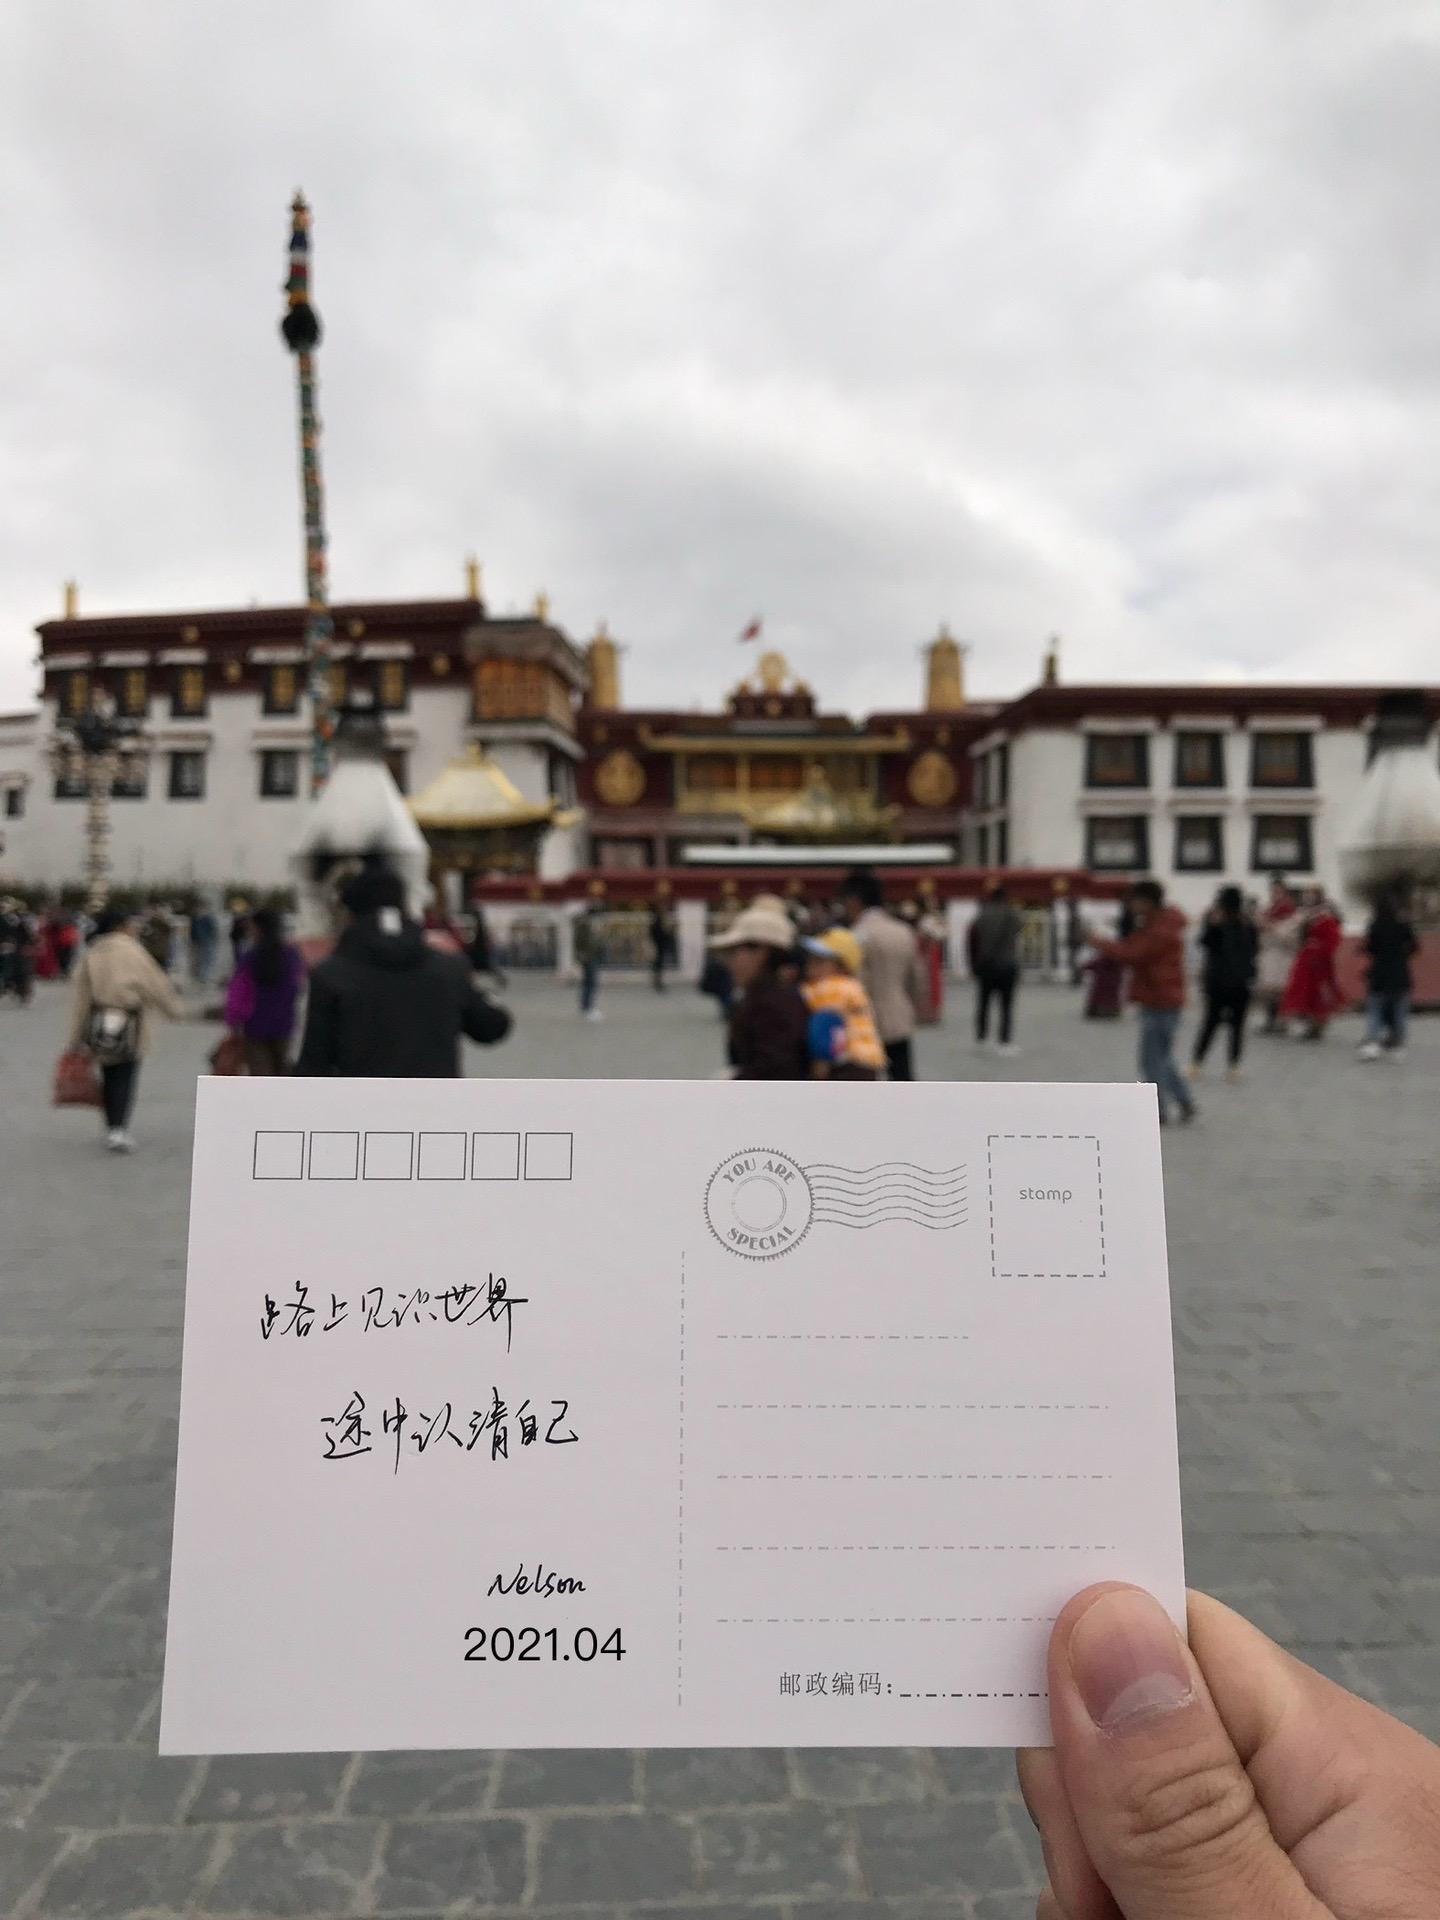 YOU ARE
SPECIAL
stamp
路上见识世界
途中认清自己
Nelson
2021.04
邮政编码：